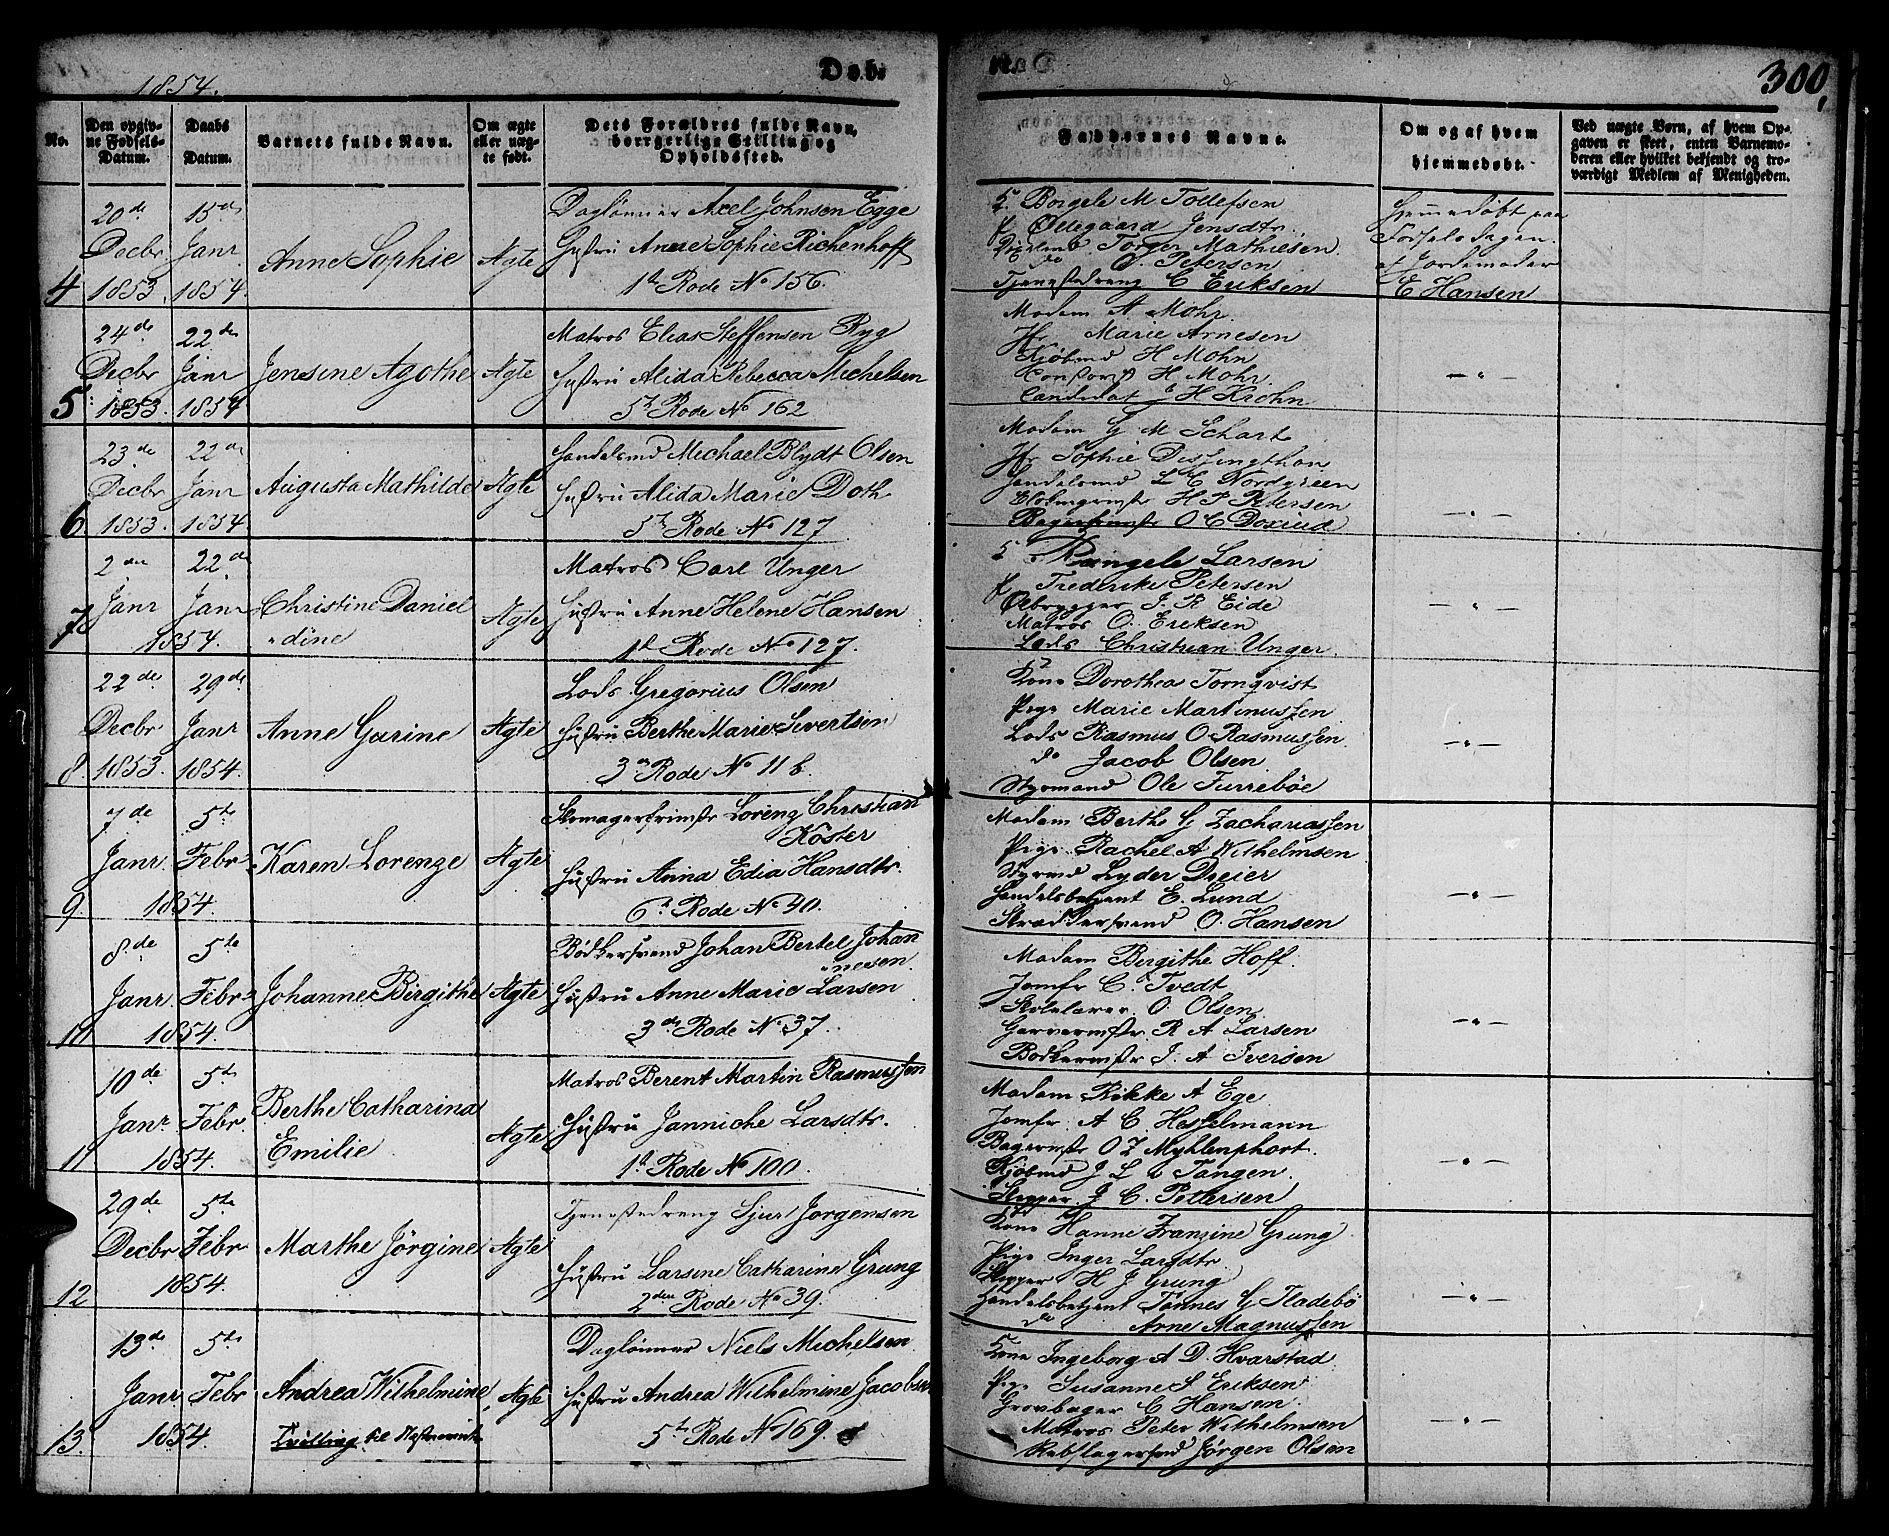 1854.
Døb.
300,
No.
Den opgiv-
ne Fødsels-
Datum.
Daabs
Datum.
Barnets fulde Navn.
Om ægte
eller uæg-
te født.
Dets Forældres fulde Navn,
borgerlige Stilling og
Opholdssted.
Faddernes Navne.
Om og af hvem
hjemmedøbt.
Ved uægte Børn, af hvem Op-
gaven er skeet, enten Barnemo-
deren eller hvilket bekjendt og tro-
værdigt Medlem af Menigheden.
4
20de
Decbr
1853.
15de
Janr
1854.
Anne Sophie
Ægte
Daglønner Axel Johnsen Egge
Hustru Anne Sophie Richenhoff
1ste Rode No 156.
Borgele M Tollefsen
Ollegaard Jensdtr.
Torger Mathiesen
do Petersen
Tjenestedreng C Eriksen
Hjemmedøbt paa
Fødselsdagen
af Jordemoder
E Hansen
5
24de
Decbr
1853.
22de
Janr
1854
Jensine Agathe
Ægte
Matros Elias Steffensen Ryg
Hustru Alida Rebecca Michelsen
5te Rode No 162
Madam A Mohr.
Jfr Marie Arnesen
Kjøbmd H Mohn
H Mohr.
Candidat J H Krohn
— " —
6
23de
Decbr
1853.
22de
Janr
1854.
Augusta Mathilde
Ægte
Handelsmd Michael Blydt Olsen
Hustru Alida Marie Doth
5te Rode No 127
Madam G M Schart
Jfr Sophie Dessingthon
Handelsmd L C Nordgreen
H P Petersen
O C Doxrud
— " —
7
2den
Janr
22de
Janr
1854.
Christine Daniel
"dine
Ægte
Matros Carl Unger
Hustru Anne Helene Hansen
1ste Rode No 127.
Rangele Larsen
Frederike Petersen
Ølbrygger J. R Eide
Matros O. Eriksen
Lods Christian Unger
— " —
8
22de
Decbr
1853.
29de
Janr
1854.
Anne Gurine
Ægte
Lods Gregorius Olsen
Hustru Berthe Marie Sivertsen
3die Rode No 11 b.
Kone Dorothea Tornqvist
Pige Marie Martinussen
Lods Rasmus O Rasmussen
do Jacob Olsen
Styrmand Ole Turrebøe
— " —
9
7de
Janr
5te
Febr
1854.
Karen Lorenze
Ægte
Skomagerfrimstr Lorenz Christian
Køster
Hustru Anna Edia Hansdtr.
6te Rode No 40.
Madam Berthe G Zachariassen
Pige Rachel A Wilhelmsen
Styrmd Lyder Dreier
Handelsbetjent E. Lund
Skræddersvend O. Hansen
— " —
10
8de
Janr
5te
Febr
1854.
Johanne Birgithe
Ægte
Bødkersvend Johan Bertel Johan
"nesen
Hustru Anne Marie Larsen
3die Rode No 37.
Madam Bergithe Hoff.
Jomfr C. Tvedt
Skolelærer O. Olsen
Garvermstr R A Larsen
Bødkermstr J. A Iversen
— " —
11
10de
Janr
5te
Febr
1854.
Berthe Catharina
Emilie
Ægte
Matros Berent Martin Rasmussen
Hustru Janniche Larsdtr.
1ste Rode No 100
Madam Rikke A Ege
Jomfr. A C. Hesselmann
Bagermstr O Z Myhlenphort
Kjøbmd J L v Tangen
Skipper J C. Pettersen
— " —
12
29de
Decbr
5te
Febr
1854.
Marthe Jørgine
Ægte
Tjenestedreng Sjur Jørgensen
Hustru Larsine Catharine Grung
2den Rode No 39.
Kone Hanne Franzine Grung
Pige Inger Larsdtr
Skipper H J Grung
Handelsbetjent Tønnes G Fladebø
do Arne Magnussen
— " —
13.
13de
Janr
5te
Febr
1854.
Andrea Wilhelmine
Tvilling til Næstnævnte
Ægte
Daglønner Niels Michelsen
Hustru Andrea Wilhelmine Jacobsen
5te Rode No 169.
Kone Ingeborg A D. Hvarstad
Pige Susanne S Eriksen
Grovbager C Hansen.
Matros Peter Wilhelmsen
Rebslagersvd Jørgen Olsen
— " —